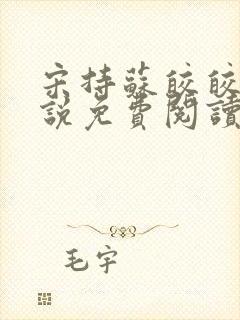 宋持蘇皎皎
說免費閱讀
毛宇